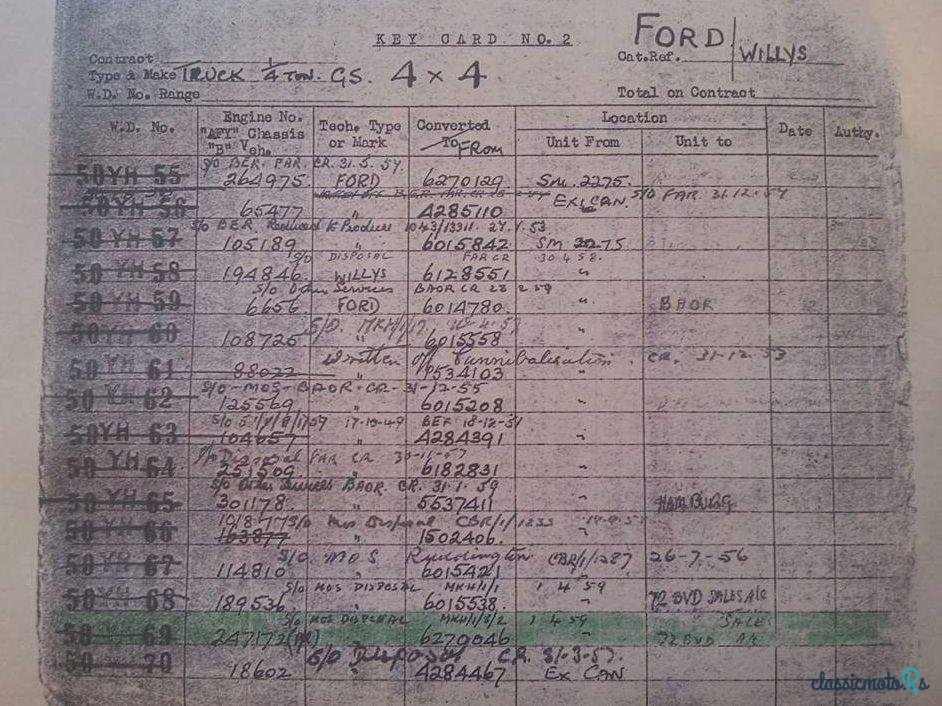 KEY CARD NO. 2
FORD / WILLYS
Contract
Cat. Ref.
Type & Make TRUCK 1/4 TON. GS. 4 x 4
W.D. No. Range
Total on Contract
W.D. No. Engine No. "AFV" Chassis "B" Veh. Tech. Type or Mark Converted To FROM Location Unit From Unit to Date Authy.
S/O BER. FAR. CR. 31.5.54.
50 YH 55 264975. FORD 6270129 SM 2275.
S/O FAR 31.12.54
50 YH 56 65477 " 4285110 EX CAN.
S/O BER. Reduced to Produce 1043/13311 27.4.53
50 YH 57 105189 " 6015842 SM 2275
S/O DISPOSAL FAR CR 30 4 58.
50 YH 58 194846. WILLYS 6128551 "
S/O Other Services BAOR CR 28 2 59
50 YH 59 6656 FORD 6014780. " BAOR
S/O.
50 YH 60 108725 " 6015558 "
Written off Cannibalisation. CR. 31-12-53
50 YH 61 88022 " 534103 "
S/O - MOS - BAOR - CR - 31-12-55
50 YH 62 125569 " 6015208 "
17-10-49 BEF 18-12-51
50 YH 63 104657 " 4284391 "
S/O Disposal FAR CR
50 YH 64 251509 " 6182831 "
S/O Other Services BAOR. CR. 31.1.59
50 YH 65 301178. " 5537411 " HAMBURG
S/O Mos Disposal CBR/1/1233
50 YH 66 163877 " 1502406. "
S/O MOS Ruddington CBR/1/1287 26-7-56
50 YH 67 114810 " 6015421 "
S/O MOS DISPOSAL MKH/1/1 1 4 59
50 YH 68 189536. " 6015538. " 72 BVD SALES
S/O MOS DISPOSAL MKH/1/3/2 1 4 59 SALES
50 YH 69 247172 " 6270046 " 72 BVD
S/O Disposal CR. 31.3.57.
50 YH 70 18602 " 4284467 EX CAN
classicmoto.rs